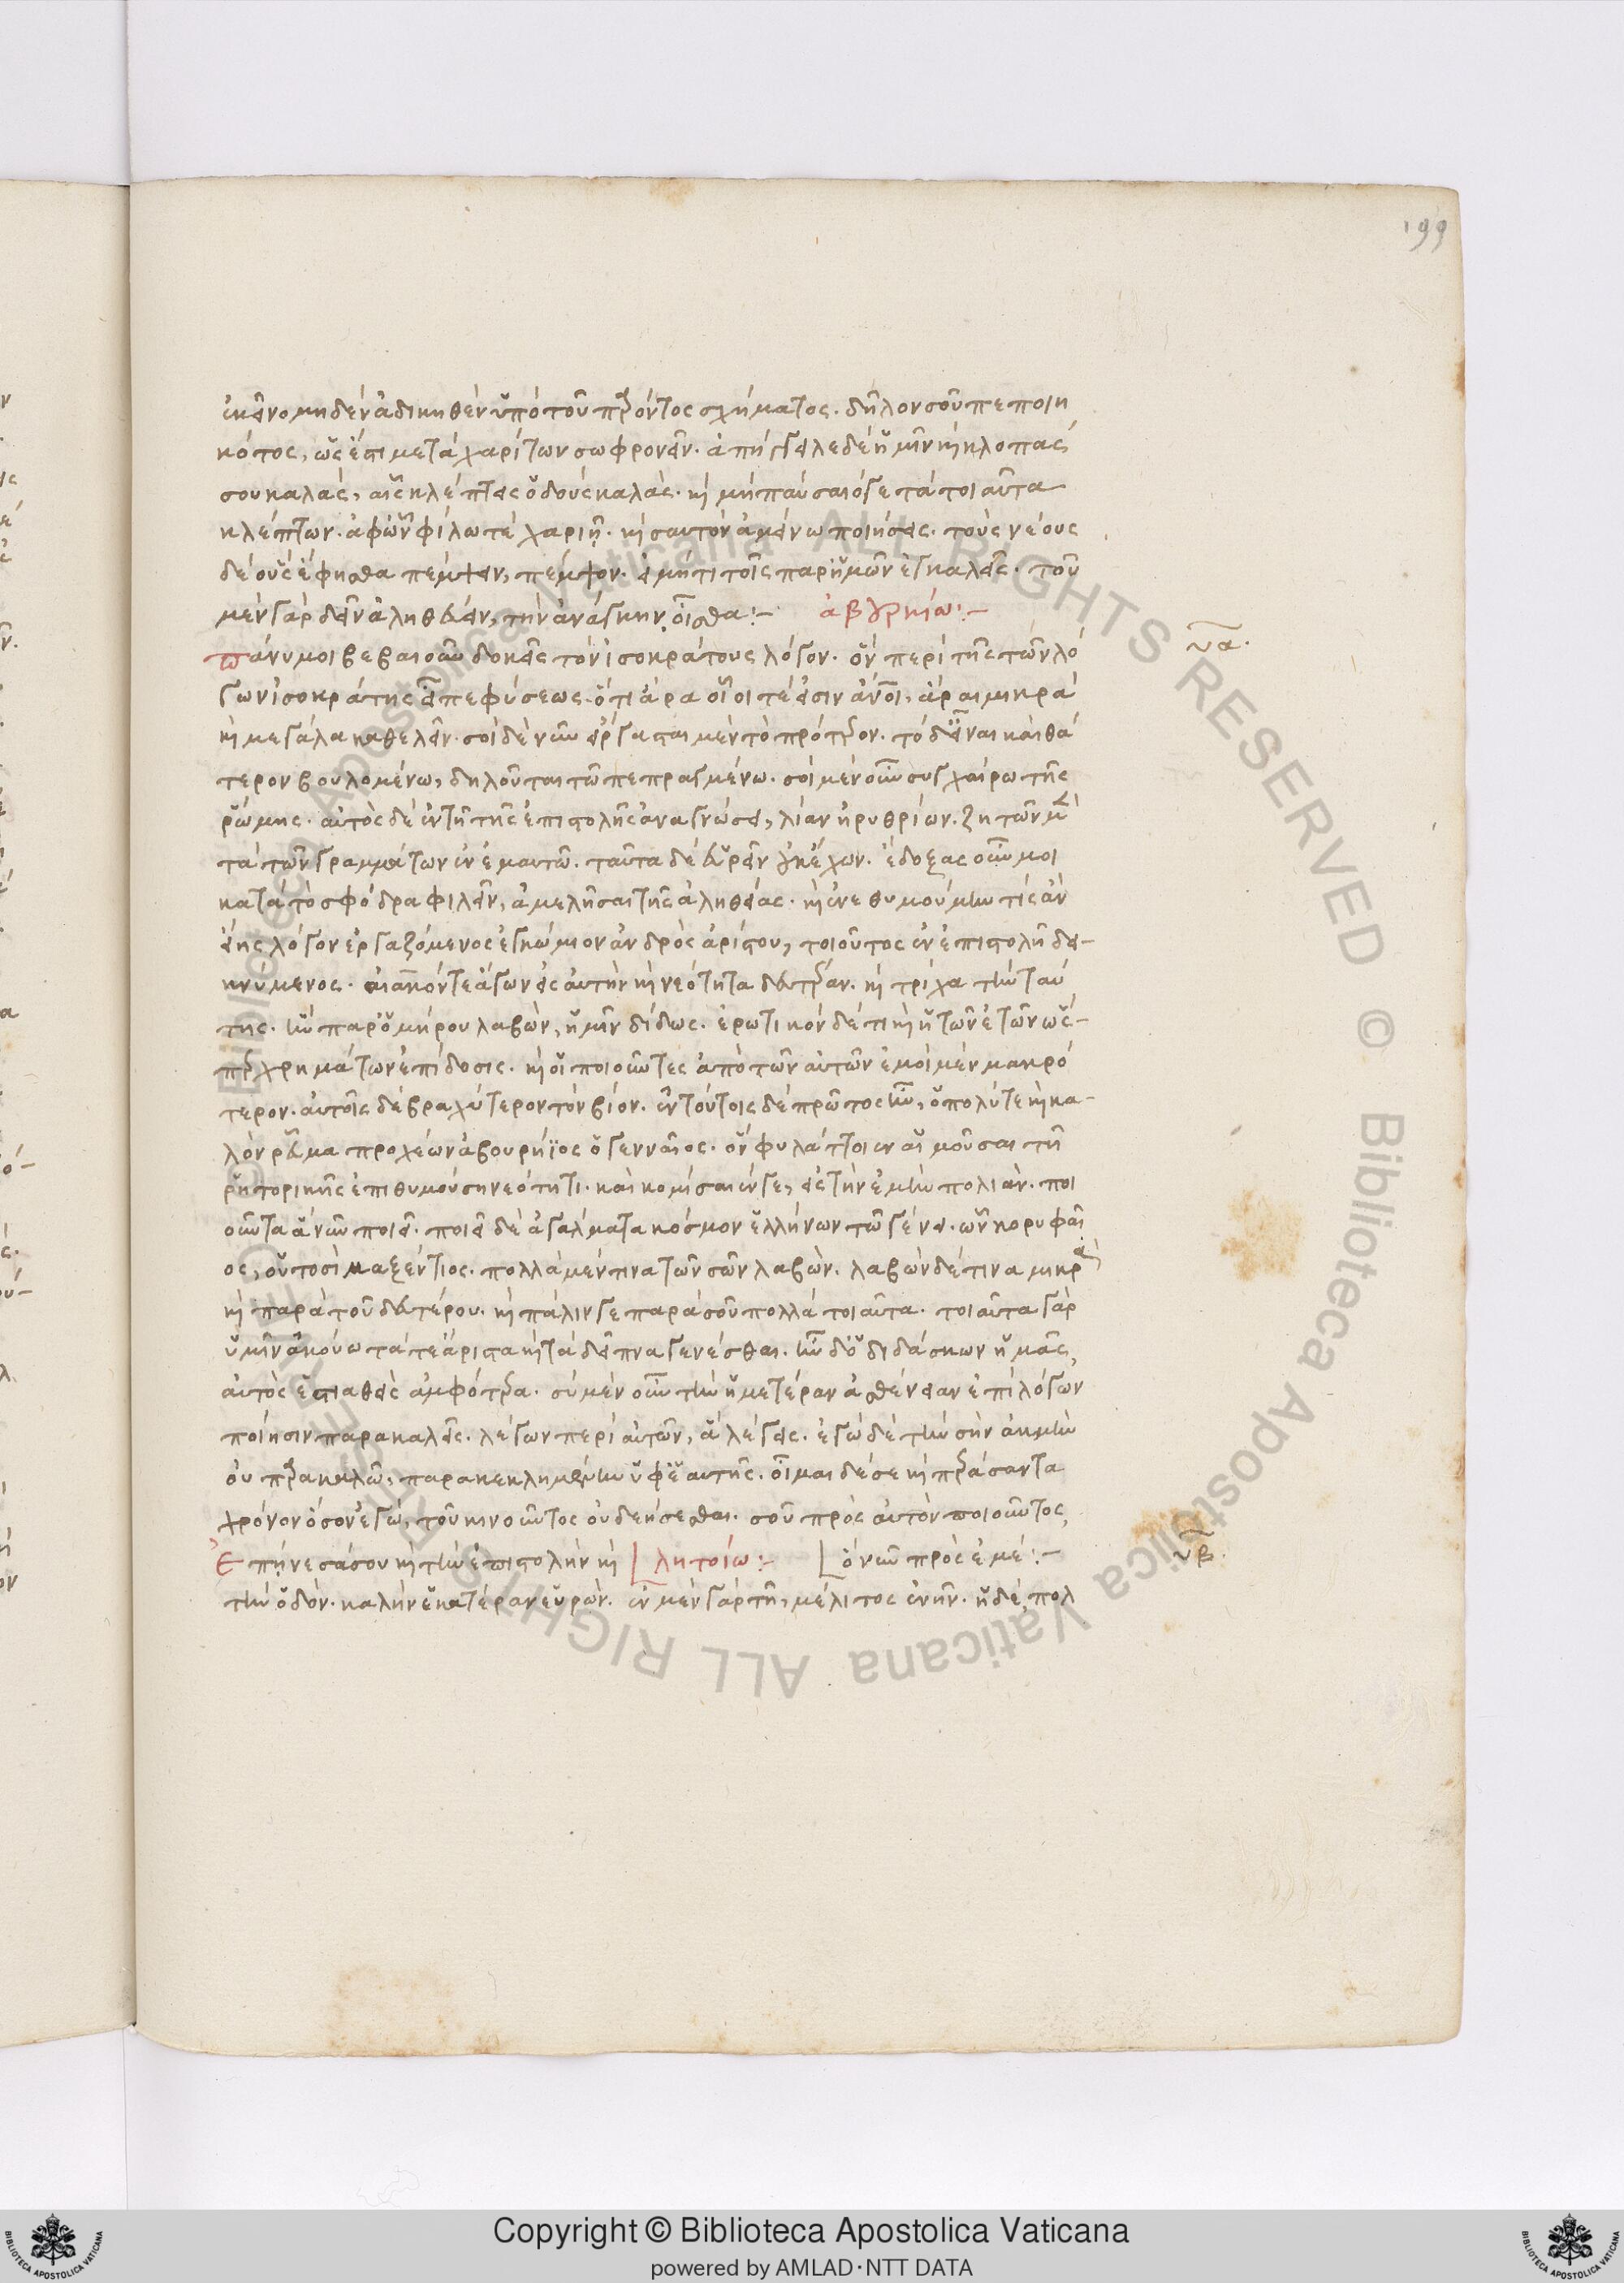 199
ἐκεῖνο μηδὲν ἀδικηθὲν ὑπὸ τοῦ παρόντος σχήματος. δῆλον σοῦ πεποιη
κότος, ὡς ἔστι μετὰ χαρίτων σωφρονεῖν. ἀπήγγειλε δὲ ἡμῖν καὶ κλοπάς
σου καλάς, αἷς κλέπτεις ὁδοὺς καλάς. καὶ μὴ παύσαιό γε τὰ τοιαῦτα
κλέπτων. ἀφ' ὧν φίλω τε χαριῇ. καὶ σαυτὸν ἀμείνω ποιήσεις. τοὺς νέους
δὲ οὓς ἔφησθα πέμψειν, πέμψον. εἰ μήτι τοῖς παρ' ἡμῶν ἐγκαλεῖς. τοῦ
μὲν γὰρ δεῖν ἀληθεύειν, τὴν ἀνάγκην οἶσθα:– ἀβυρκίω:–
να.
πάνυ μοι βεβαιοῦν δοκεῖς τὸν ἰσοκράτους λόγον. ὃν περὶ τῆς τῶν λό
γων ἰσοκράτης εἶπε φύσεως. ὅτι ἄρα οἷοί τέ εἰσιν αὐτοὶ, ἆραι μικρὰ
καὶ μεγάλα καθελεῖν. σοὶ δὲ νῦν εἴργασται μὲν τὸ πρότερον. τὸ δ' εἶναι καὶ θά
τερον βουλομένω, δηλοῦται τῶ πεπραγμένω. σοὶ μὲν οὖν συγχαίρω τῆς
ῥώμης. αὐτὸς δὲ ἐν τῇ τῆς ἐπιστολῆς ἀναγνώσει, λίαν ἠρυθρίων. ζητῶν με
τὰ τῶν γραμμάτων ἐν ἐμαυτῶ. ταῦτα δὲ εὑρεῖν οὐκ ἔχων. ἔδοξας οὖν μοι
κατὰ τὸ σφόδρα φιλεῖν, ἀμελῆσαι τῆς ἀληθείας. καὶ ἐνεθυμούμην τίς ἂν
εἴης λόγον ἐργαζόμενος ἐγκώμιον ἀνδρὸς ἀρίστου, τοιοῦτος ἐν ἐπιστολῇ δει–
κνύμενος. ἀκούοντ' ἄγων εἰς αὐτὴν καὶ νεότητα δευτέραν. καὶ τρίχα τὴν ταύ
της. ἣν παρ' ὁμήρου λαβὼν, ἡμῖν δίδως. ἐρωτικὸν δέ τι καὶ ἡ τῶν ἐτῶν ὥσ–
περ χρημάτων ἐπίδοσις. καὶ οἱ ποιοῦντες ἀπὸ τῶν αὐτῶν ἐμοὶ μὲν μακρό
τερον. αὐτοῖς δὲ βραχύτερον τὸν βίον. ἐν τούτοις δὲ πρῶτος ἦν, ὁ πολύ τε καὶ κα–
λὸν ῥεῦμα προχέων ἀβουρήϊος ὁ γενναῖος. ὃν φυλάττοιεν αἱ μοῦσαι τῇ
ῥητορικῆς ἐπιθυμούσῃ νεότητι. καὶ κομίσαιέν γε, εἰς τὴν ἐμὴν πολιὰν. ποι
οῦντα ἃ νῦν ποιεῖ. ποιεῖ δὲ ἀγάλματα κόσμον ἑλλήνων τῶ γένει. ὧν κορυφαῖ
ος, οὑτοσὶ μαξέντιος. πολλὰ μέν τινα τῶν σῶν λαβὼν. λαβὼν δέ τινα μικρὰ
καὶ παρὰ τοῦ δευτέρου. καὶ πάλιν γε παρὰ σοῦ πολλὰ τοιαῦτα. τοιαῦτα γὰρ
ὑμῖν ἀκούω τά τε ἄριστα καὶ τὰ δεῖπνα γενέσθαι. ἦν δ' ὁ διδάσκων ἡμᾶς,
αὐτὸς ἑστιαθεὶς ἀμφότερα. σὺ μὲν οὖν τὴν ἡμετέραν ἀσθένειαν ἐπὶ λόγων
ποίησιν παρακαλεῖς. λέγων περὶ αὐτῶν, ἃ λέγεις. ἐγὼ δὲ τὴν σὴν ἀκμὴν
οὐ παρακαλῶ, παρακεκλημένην ὑφ' ἑαυτῆς. οἶμαι δέ σε καὶ περάσαντα
χρόνον ὅσον ἐγώ, τοῦ κινοῦντος οὐ δεήσεσθαι. σοῦ πρὸς αὐτὸν ποιοῦντος,
ὃ νῦν πρὸς ἐμέ:–
λητοίω:–
νβ.
Ἐπῄνεσά σου καὶ τὴν ἐπιστολὴν καὶ
τὴν ὁδόν. καλὴν ἑκατέραν εὑρών. ἐν μὲν γὰρ τῇ, μέλιτος ἐνῆν. ἡ δὲ, πολ
Copyright © Biblioteca Apostolica Vaticana
powered by AMLAD·NTT DATA